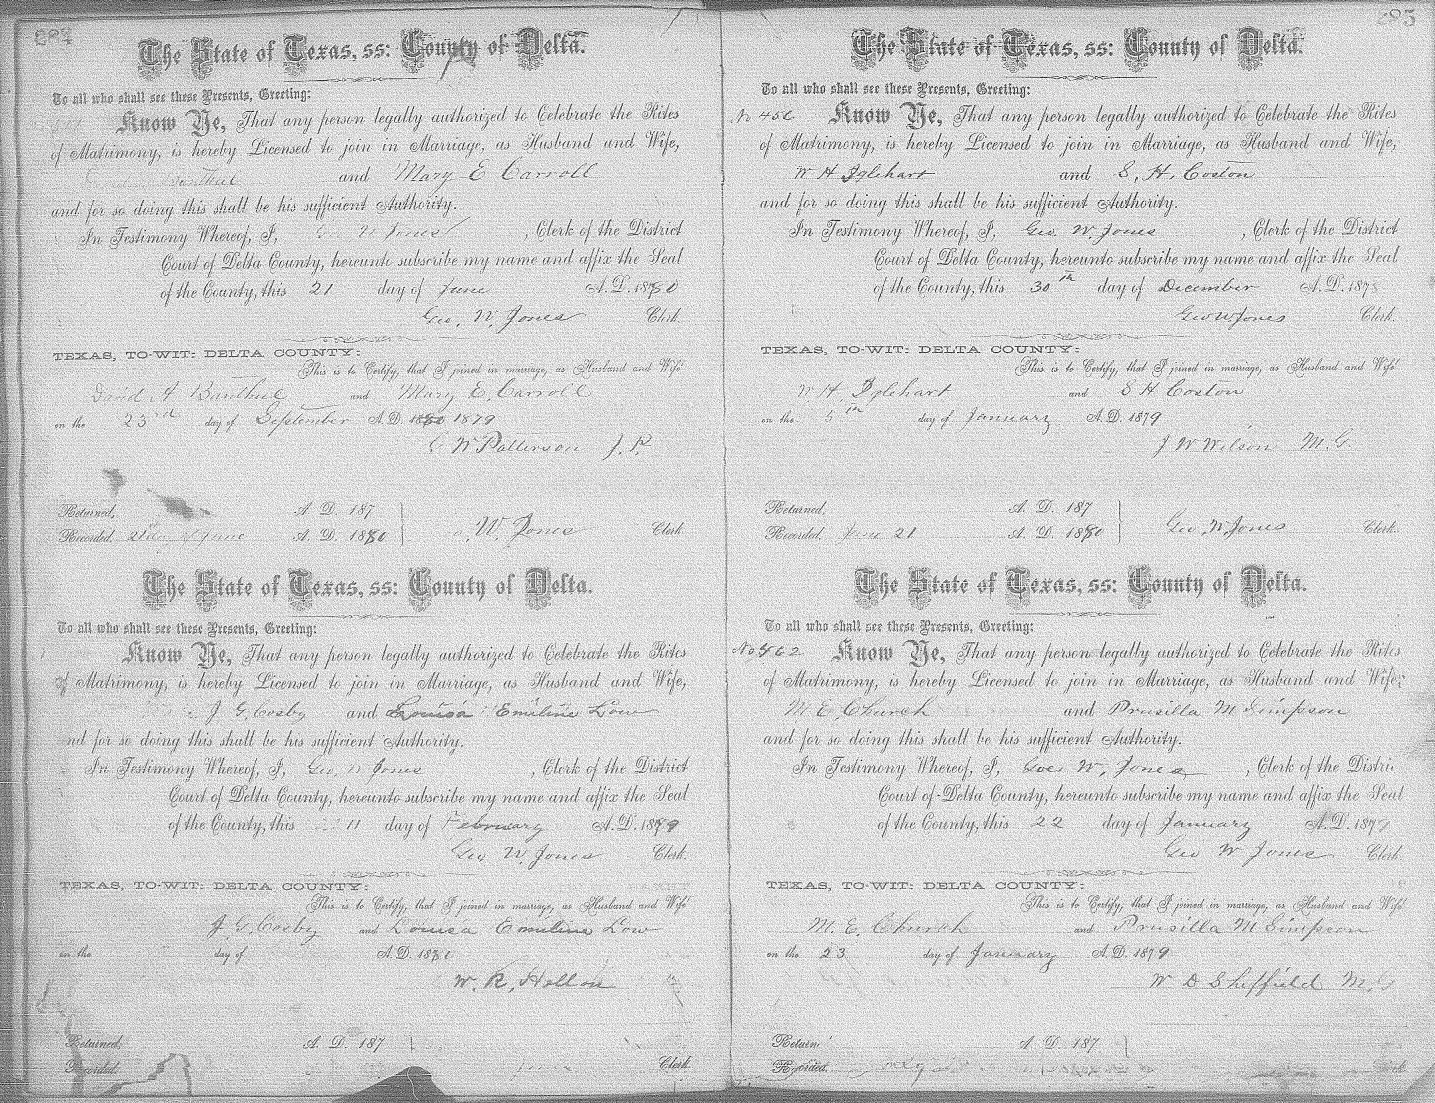 284
The State of Texas, ss: County of Delta.
To all who shall see these Presents, Greeting:
Know Ye, That any person legally authorized to Celebrate the Rites
of Matrimony, is hereby Licensed to join in Marriage, as Husband and Wife,
and Mary E Carroll
and for so doing this shall be his sufficient Authority.
In Testimony Whereof, I, Geo W Jones, Clerk of the District
Court of Delta County, hereunto subscribe my name and affix the Seal
of the County, this 21 day of June A. D. 1880
Geo. W. Jones Clerk.
TEXAS, TO-WIT: DELTA COUNTY:
This is to Certify, that I joined in marriage, as Husband and Wife
David A and Mary E. Carroll
on the 23rd day of September A. D. 1880 1879
G W Patterson J. P.
Returned, A. D. 187
Recorded, 21 day of June A. D. 1880 W. Jones Clerk
The State of Texas, ss: County of Delta.
To all who shall see these Presents, Greeting:
Know Ye, That any person legally authorized to Celebrate the Rites
of Matrimony, is hereby Licensed to join in Marriage, as Husband and Wife,
J G. Cosby and Louisa Emiline Low
and for so doing this shall be his sufficient Authority.
In Testimony Whereof, I, Geo, W Jones, Clerk of the District
Court of Delta County, hereunto subscribe my name and affix the Seal
of the County, this 11 day of February A. D. 1879
Geo W. Jones Clerk.
TEXAS, TO-WIT: DELTA COUNTY:
This is to Certify, that I joined in marriage, as Husband and Wife
J. G. Cosby and Louisa Emiline Low
on the day of A. D. 1880
W. R. Hellon
Returned, A. D. 187
Recorded, Clerk
285
The State of Texas, ss: County of Delta.
To all who shall see these Presents, Greeting:
No 456 Know Ye, That any person legally authorized to Celebrate the Rites
of Matrimony, is hereby Licensed to join in Marriage, as Husband and Wife,
W H Iglehart and S. H. Coston
and for so doing this shall be his sufficient Authority.
In Testimony Whereof, I, Geo. W. Jones, Clerk of the District
Court of Delta County, hereunto subscribe my name and affix the Seal
of the County, this 30th day of December A. D. 1878
Geo W Jones Clerk.
TEXAS, TO-WIT: DELTA COUNTY:
This is to Certify, that I joined in marriage, as Husband and Wife
W H. Iglehart and S H Coston
on the 5th day of January A. D. 1879
J W Wilson M. G.
Returned, A. D. 187
Recorded, June 21 A. D. 1880 Geo. W. Jones Clerk.
The State of Texas, ss: County of Delta.
To all who shall see these Presents, Greeting:
No 462 Know Ye, That any person legally authorized to Celebrate the Rites
of Matrimony, is hereby Licensed to join in Marriage, as Husband and Wife,
M. E. Church and Prusilla M Simpson
and for so doing this shall be his sufficient Authority.
In Testimony Whereof, I, Geo W. Jones, Clerk of the Distri
Court of Delta County, hereunto subscribe my name and affix the Seal
of the County, this 22 day of January A. D. 1879
Geo W Jones Clerk.
TEXAS, TO-WIT: DELTA COUNTY:
This is to Certify, that I joined in marriage, as Husband and Wife
M. E. Church and Prusilla M Simpson
on the 23 day of January A. D. 1879
W D Sheffield M. G
Returne A. D. 187
Recorded.